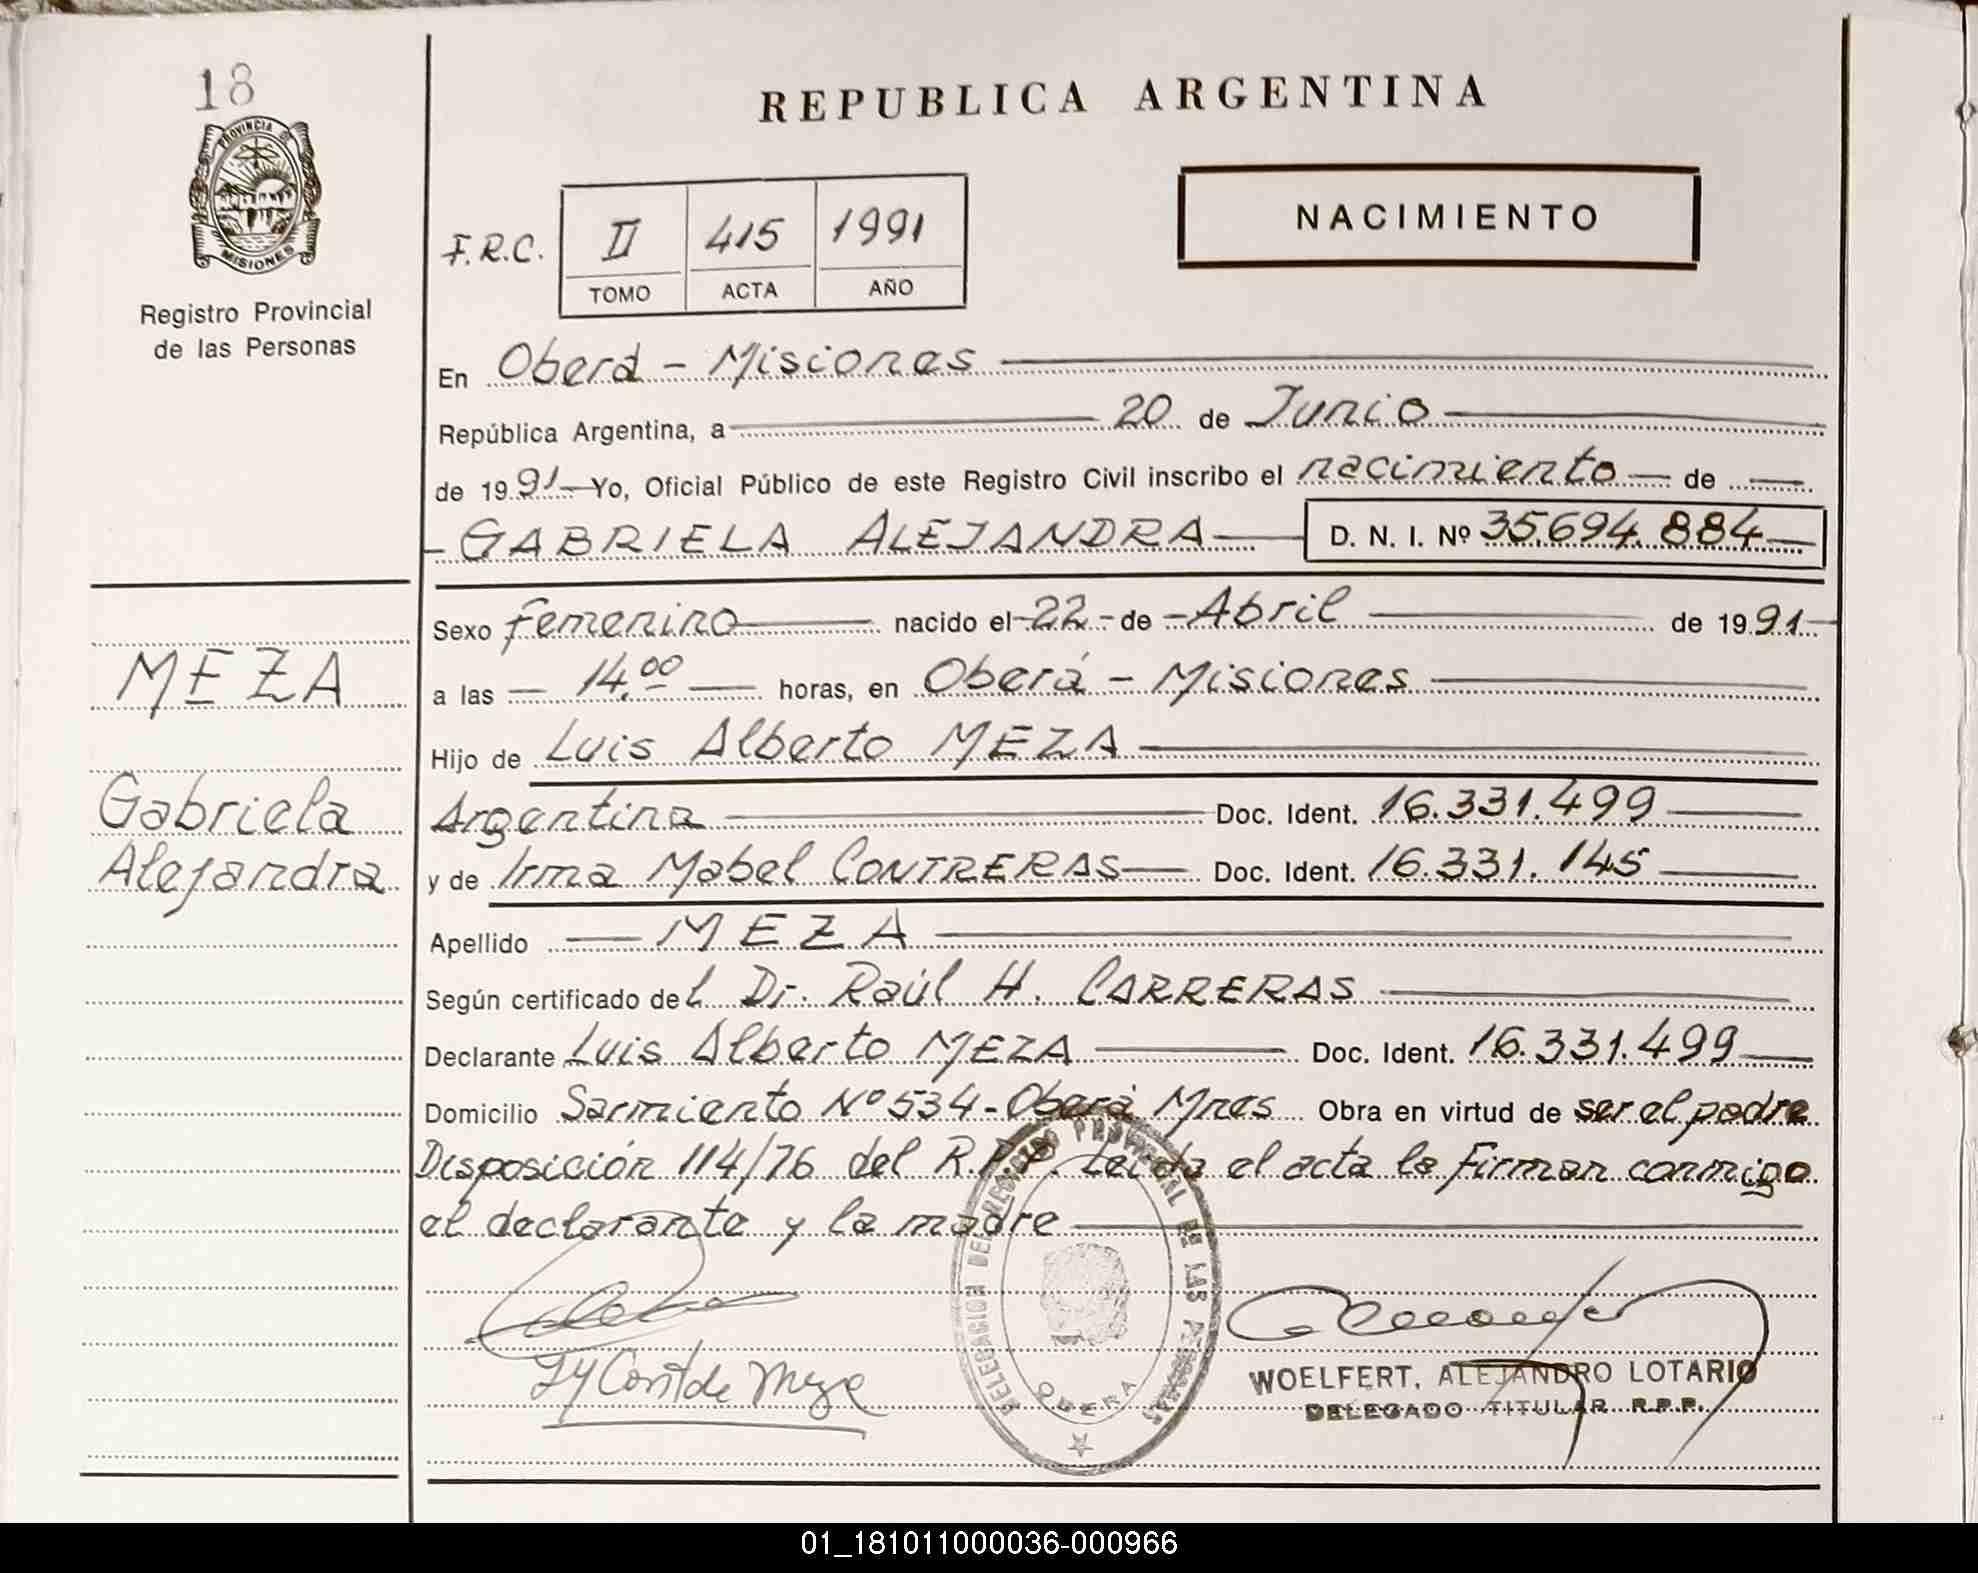 18
PROVINCIA DE
MISIONES
Registro Provincial
de las Personas
MEZA
Gabriela
Alejandra
REPUBLICA ARGENTINA
NACIMIENTO
F.R.C. II 415 1991
TOMO ACTA AÑO
En Oberá - Misiones
República Argentina, a 20 de Junio
de 1991 Yo, Oficial Público de este Registro Civil inscribo el nacimiento de
GABRIELA ALEJANDRA D. N. I. Nº 35.694.884
Sexo Femenino nacido el 22 de Abril de 1991
a las 14.00 horas, en Oberá - Misiones
Hijo de Luis Alberto MEZA
Argentina Doc. Ident. 16.331.499
y de Irma Mabel CONTRERAS Doc. Ident. 16.331.145
Apellido MEZA
Según certificado del Dr. Raúl H. CARRERAS
Declarante Luis Alberto MEZA Doc. Ident. 16.331.499
Domicilio Sarmiento Nº 534 - Oberá Mnes Obra en virtud de ser el padre
Disposición 114/76 del R.P.P. Leida el acta la firman conmigo
el declarante y la madre
DELEGACION DEL REGISTRO PROVINCIAL DE LAS PERSONAS
OBERA
WOELFERT, ALEJANDRO LOTARIO
DELEGADO TITULAR R.P.P.
01_181011000036-000966